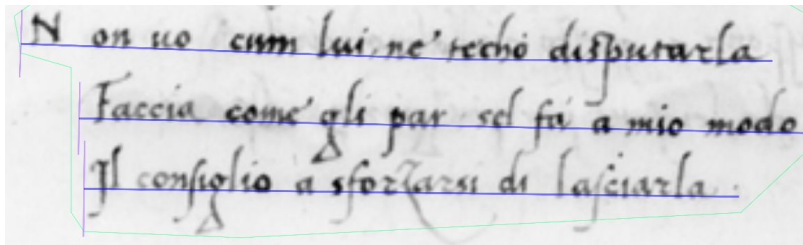 N on uo cum lui, ne' techo disputarla
Faccia come' gli par sel fa a mio modo
Il consiglio a sforzarsi di lasciarla.